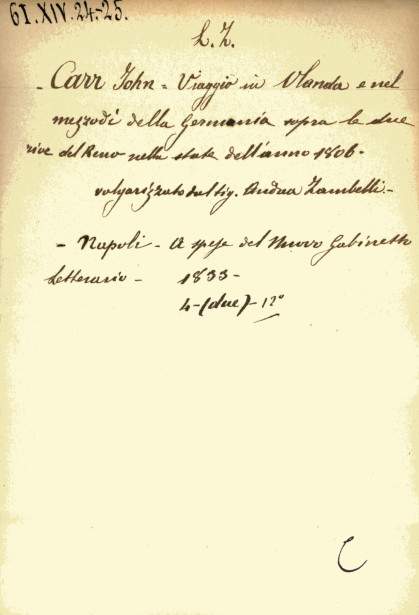 61.XIV.24-25.
L. Z.
- Carr John = Viaggio in Olanda e nel
mezzodì della Germania sopra le due
rive del Reno nella state dell'anno 1806-
volgarizzato dal Sig. Andrea Zambelli.-
- Napoli - A spese del Nuovo Gabinetto
Letterario - 1833-
4-(due)-12º
C